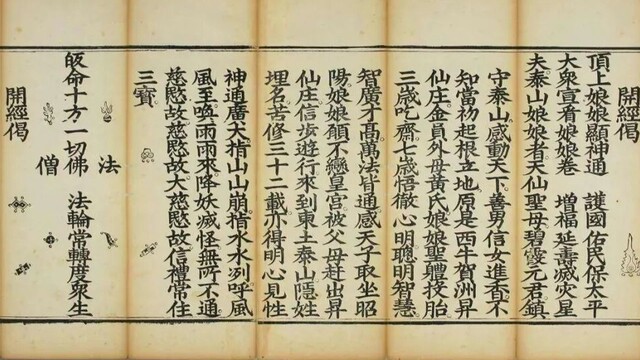 開經偈
頂上娘娘顯神通　護國佑民保太平
大衆宣看娘娘卷　增福延壽滅灾星
夫泰山娘娘者天仙聖母碧霞元君鎮
守泰山感動天下善男信女進香不
知當初起根立地原是西牛賀洲昇
仙庄金員外母黃氏娘娘聖體投胎
三歲吃齋七歲悟徹心明聰明智慧
智廣才高萬法皆通感天子取坐昭
陽娘娘願不戀皇宮被父母赶出昇
仙庄信步遊行來到東土泰山隱姓
埋名苦修三十二載亦得明心見性
神通廣大指山山崩指水水冽呼風
風至喚雨雨來降妖滅怪無所不通
慈愍故慈愍故大慈愍故信禮常住
三寶
法
皈命十方一切佛　法輪常轉度衆生
僧
開經偈